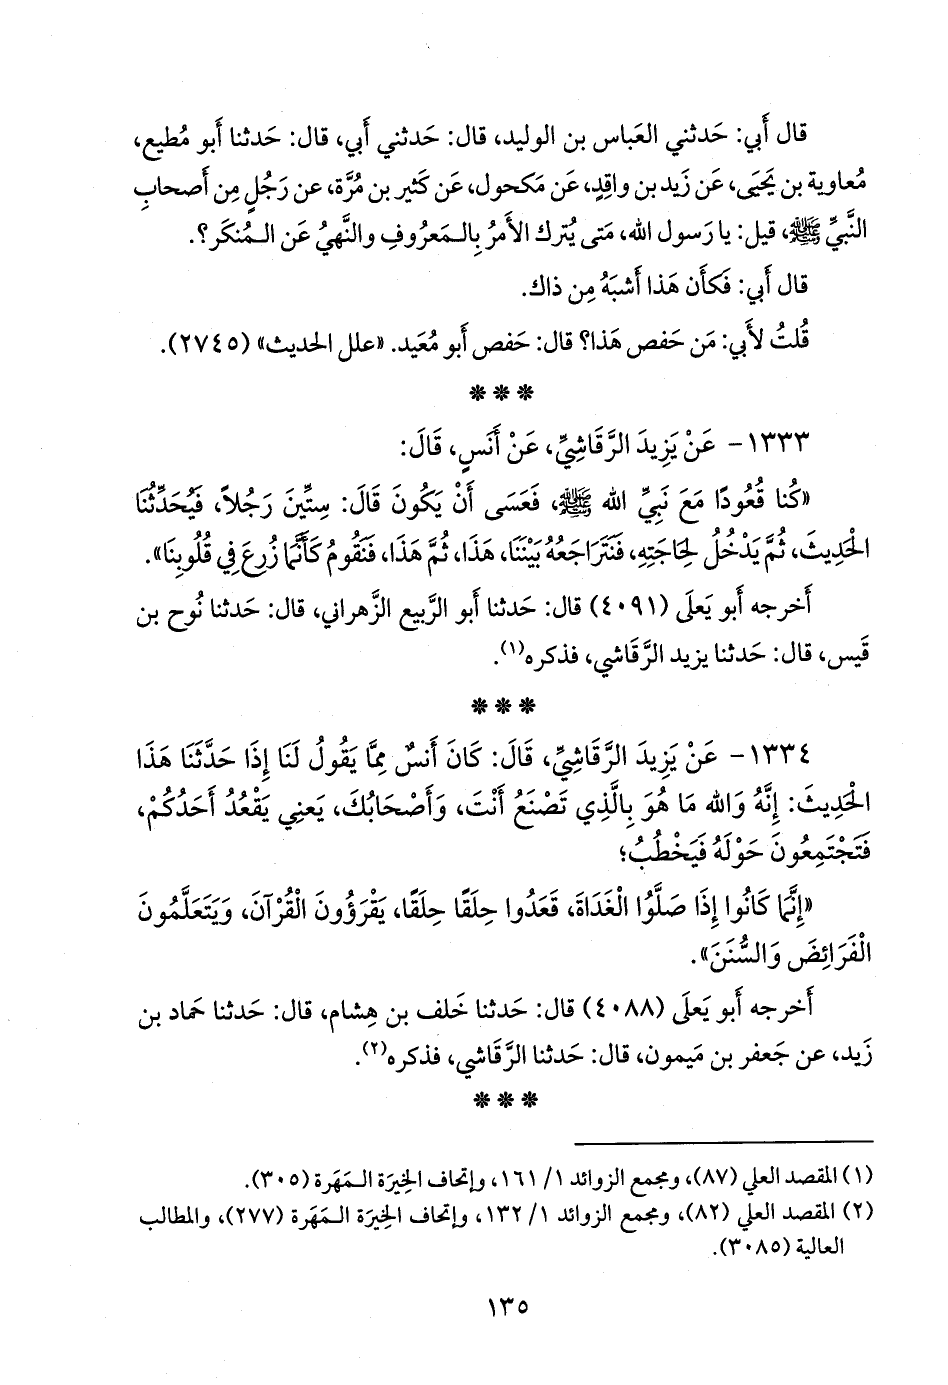 قال أَبي: حَدثني العَباس بن الوليد، قال: حَدثني أَبي، قال: حَدثنا أَبو مُطيع،
مُعاوية بن يَحيَى، عَن زَيد بن واقِدٍ، عَن مَكحول، عَن كَثير بن مُرَّة، عن رَجُلٍ مِن أَصحابِ
النَّبيِّ ﷺ، قيل: يا رَسول الله، مَتى يُترك الأَمرُ بِالـمَعرُوفِ والنَّهيُ عَن الـمُنكَر؟.
قال أَبي: فَكأَن هَذا أَشبَهُ مِن ذاك.
قُلتُ لأَبي: مَن حَفص هَذا؟ قال: حَفص أَبو مُعَيد. «علل الحديث» (٢٧٤٥).
* * *
١٣٣٣- عَنْ يَزِيدَ الرَّقَاشِيِّ، عَنْ أَنَسٍ، قَالَ:
«كُنا قُعُودًا مَعَ نَبِيِّ الله ﷺ، فَعَسَى أَنْ يَكُونَ قَالَ: سِتِّينَ رَجُلاً، فَيُحَدِّثُنَا
الْحَدِيثَ، ثُمَّ يَدْخُلُ لِحَاجَتِهِ، فَنَتَرَاجَعُهُ بَيْنَنَا، هَذَا، ثُمَّ هَذَا، فَنَقُومُ كَأَنَّمَا زُرِعَ فِي قُلُوبِنَا».
أَخرجه أَبو يَعلَى (٤٠٩١) قال: حَدثنا أَبو الرَّبيع الزَّهراني، قال: حَدثنا نُوح بن
قَيس، قال: حَدثنا يزيد الرَّقَاشي، فذكره(١).
* * *
١٣٣٤- عَنْ يَزِيدَ الرَّقَاشِيِّ، قَالَ: كَانَ أَنسٌ مِمَّا يَقُولُ لَنَا إِذَا حَدَّثَنَا هَذَا
الْحَدِيثَ: إِنَّهُ وَالله مَا هُوَ بِالَّذِي تَصْنَعُ أَنْتَ، وَأَصْحَابُكَ، يَعنِي يَقْعُدُ أَحَدُكُمْ،
فَتَجْتَمِعُونَ حَوْلَهُ فَيَخْطُبُ؛
«إِنَّمَا كَانُوا إِذَا صَلَّوُا الْغَدَاةَ، قَعَدُوا حِلَقًا حِلَقًا، يَقْرَؤُونَ الْقُرْآنَ، وَيَتَعَلَّمُونَ
الْفَرَائِضَ وَالسُّنَنَ».
أَخرجه أَبو يَعلَى (٤٠٨٨) قال: حَدثنا خَلف بن هِشام، قال: حَدثنا حَماد بن
زَيد، عن جَعفر بن مَيمون، قال: حَدثنا الرَّقَاشي، فذكره(٢).
* * *
(١) المقصد العلي (٨٧)، ومجمع الزوائد ١/ ١٦١، وإتحاف الخِيرَة الـمَهَرة (٣٠٥).
(٢) المقصد العلي (٨٢)، ومجمع الزوائد ١/ ١٣٢، وإتحاف الخِيرَة الـمَهَرة (٢٧٧)، والمطالب
العالية (٣٠٨٥).
١٣٥